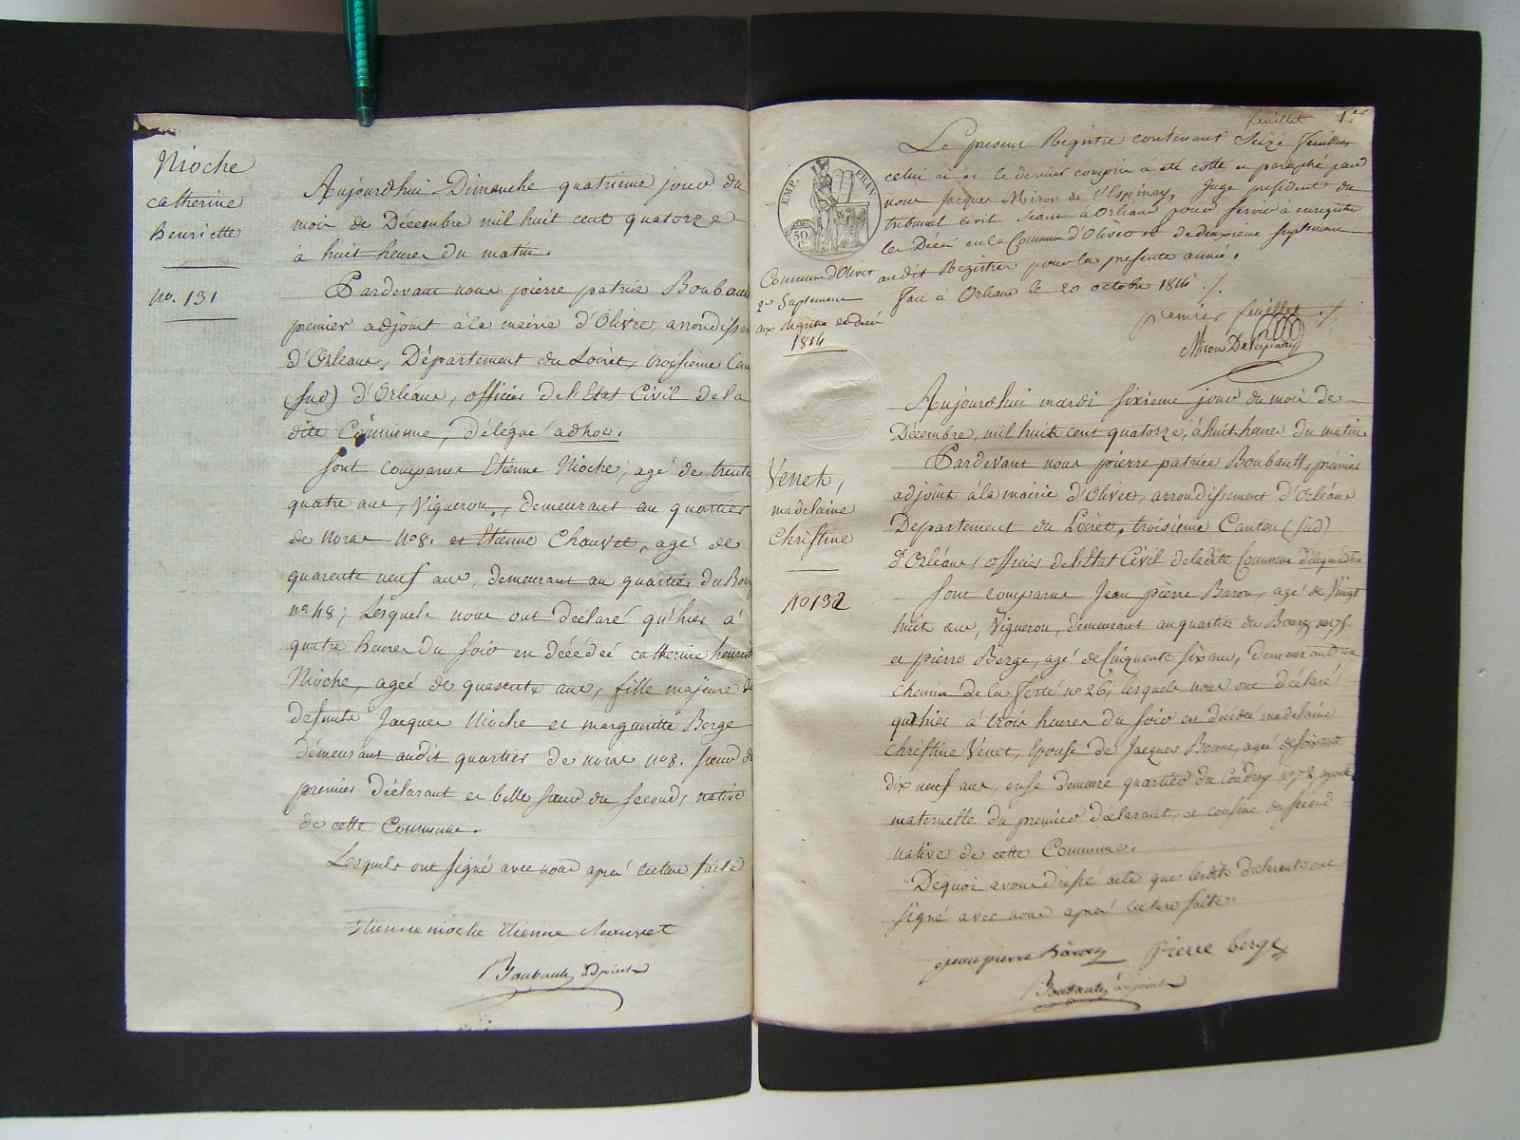 Nioche
catherine
henriette
No. 131
Aujourdhui Dimanche quatrieme jour du
mois de Décembre mil huit cent quatorze
à huit heures du matin.
Pardevant nous pierre patrice Boubault
premier adjoint à la mairie d'Olivet, arrondissem
d'Orleans, Département du Loiret, troisieme Can
(sud) d'Orléans, officier de l'Etat Civil de la
dite Commune, délégué adhoc.
Sont comparus Etienne Nioche, agé de trente
quatre ans, Vigneron, demeurant au quartier
de noras no 8. et Etienne Chauvet, agé de
quarante neuf ans, demeurant au quartier du Bou
no 48; Lesquels nous ont declaré qu'hier à
quatre heures du soir en décédeé catherine henriet
Nioche, ageé de quarente ans, fille majeure de
defunts Jacques Nioche et margueritte Berge
demeurant audit quartier de noras no 8. soeur du
premier déclarant et belle soeur du second, native
de cette Commune.
Lesquels ont signé avec nous aprés lecture faite
Etienne nioche Etienne chauvet
Boubault adjoint
feuillet 1er
Le present Registre contenant Seize feuilles
celui ci et le dernier compris a été cotté et paraphé par
nous Jacques Miron de l'Espinay, Juge president du
tribunal Civil seant à Orléans pour servir à enregistrer
les Décés en la Commune d'Olivet et de deuxieme suplement
audit Registre pour la presente année.
fait à Orléans le 20 octobre 1814 ./.
premier feuillet ./.
Miron De l'espinay
EMP. FRANC.
50
Commune d'Olivet
2e Suplement
aux registre de décés
1814
Venet,
madelaine
christine
No 132
Aujourdhui mardi sixieme jour du mois de
Décembre, mil huit cent quatorze, à huit heures du matin
Pardevant nous pierre patrice Boubault, premier
adjoint à la mairie d'Olivet, arrondissement d'Orléans
Departement du Loiret, troisième Canton (sud)
d'Orléans, officier de l'Etat Civil de ladite Commune délégué adhoc
Sont comparus Jean pierre Baron, agé de Vingt
huit ans, Vigneron, demeurant au quartier du Bourg no 75
et pierre Berge, agé de cinquante six ans, demeurant
chemin de la ferté no 26, lesquels nous ont déclaré
qu'hier à trois heures du soir en décédé madelaine
christine Venet, Epouse de Jacques Berge, ageé de soixante
dix neuf ans, en sa demeure quartier du Coudray no 72, ayeule
maternelle du premier declarant, et cousine du second
native de cette Commune.
Dequoi avons dressé acte que lesdits declarants ont
signé avec nous aprés lecture faite.
jean pierre baron Pierre berge
Boubault adjoint